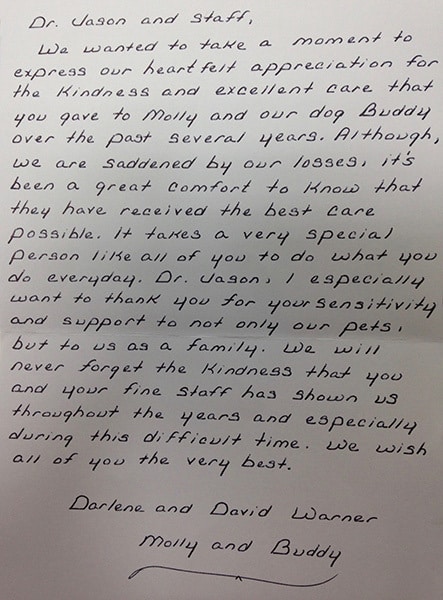 Dr. Jason and Staff,
We wanted to take a moment to
express our heartfelt appreciation for
the kindness and excellent care that
you gave to Molly and our dog Buddy
over the past several years. Although,
we are saddened by our losses, it's
been a great comfort to know that
they have received the best care
possible. It takes a very special
person like all of you to do what you
do everyday. Dr. Jason, I especially
want to thank you for your sensitivity
and support to not only our pets,
but to us as a family. We will
never forget the kindness that you
and your fine staff has shown us
throughout the years and especially
during this difficult time. We wish
all of you the very best.
Darlene and David Warner
Molly and Buddy